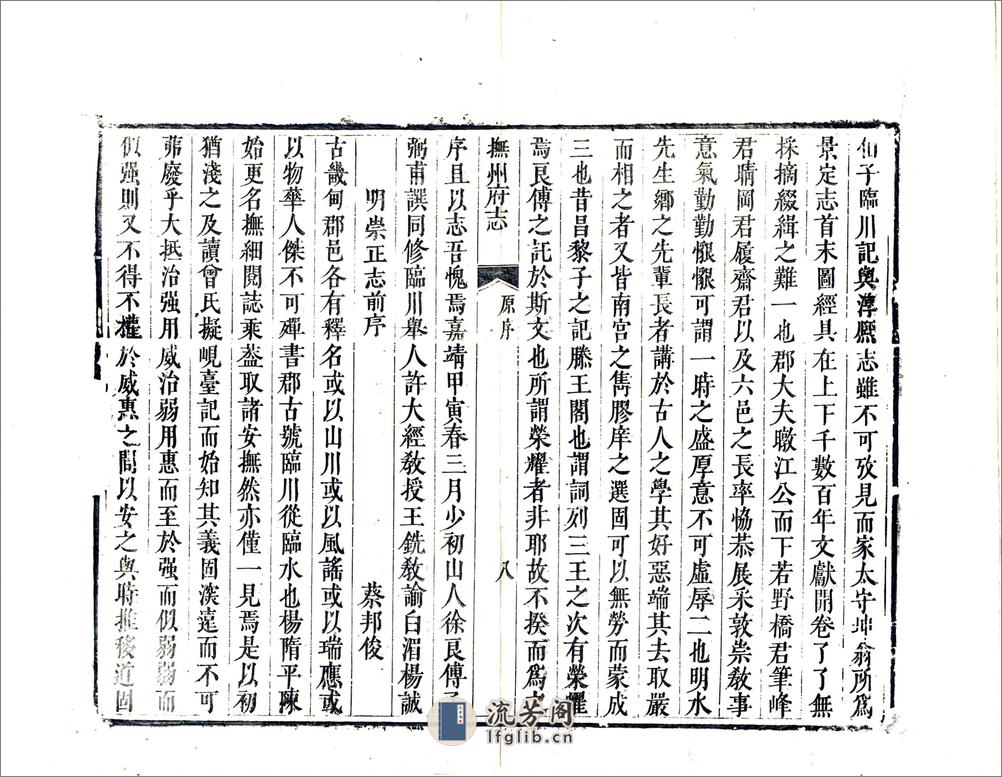 仙子臨川記與淳熙志雖不可攷見而家太守坤翁所爲
景定志首末圖經具在上下千數百年文獻開卷了了無
採摘綴緝之難一也郡大夫墩江公而下若野橋君筆峰
君晴岡君履齋君以及六邑之長率恊恭展采敦崇敎事
意氣勤勤懇懇可謂一時之盛厚意不可虛辱二也明水
先生鄉之先輩長者講於古人之學其好惡端其去取嚴
而相之者又皆南宮之雋膠庠之選固可以無勞而蒙成
三也昔昌黎子之記滕王閣也謂詞列三王之次有榮耀
焉良傅之託於斯文也所謂榮耀者非耶故不揆而爲之
撫州府志
原序
八
序且以志吾愧焉嘉靖甲寅春三月少初山人徐良傅子
弼甫譔同修臨川舉人許大經敎授王銑敎諭白湄楊誠
明崇正志前序
蔡邦俊
古畿甸郡邑各有釋名或以山川或以風謠或以瑞應或
以物華人傑不可殫書郡古號臨川從臨水也楊隋平陳
始更名撫細閱誌乘葢取諸安撫然亦僅一見焉是以初
猶淺之及讀曾氏擬峴臺記而始知其義固湥遠而不可
弗廢乎大抵治强用威治弱用惠而至於强而似弱弱而
似强則又不得不權於威惠之間以安之與時推移近固
流芳阁
lfglib.cn